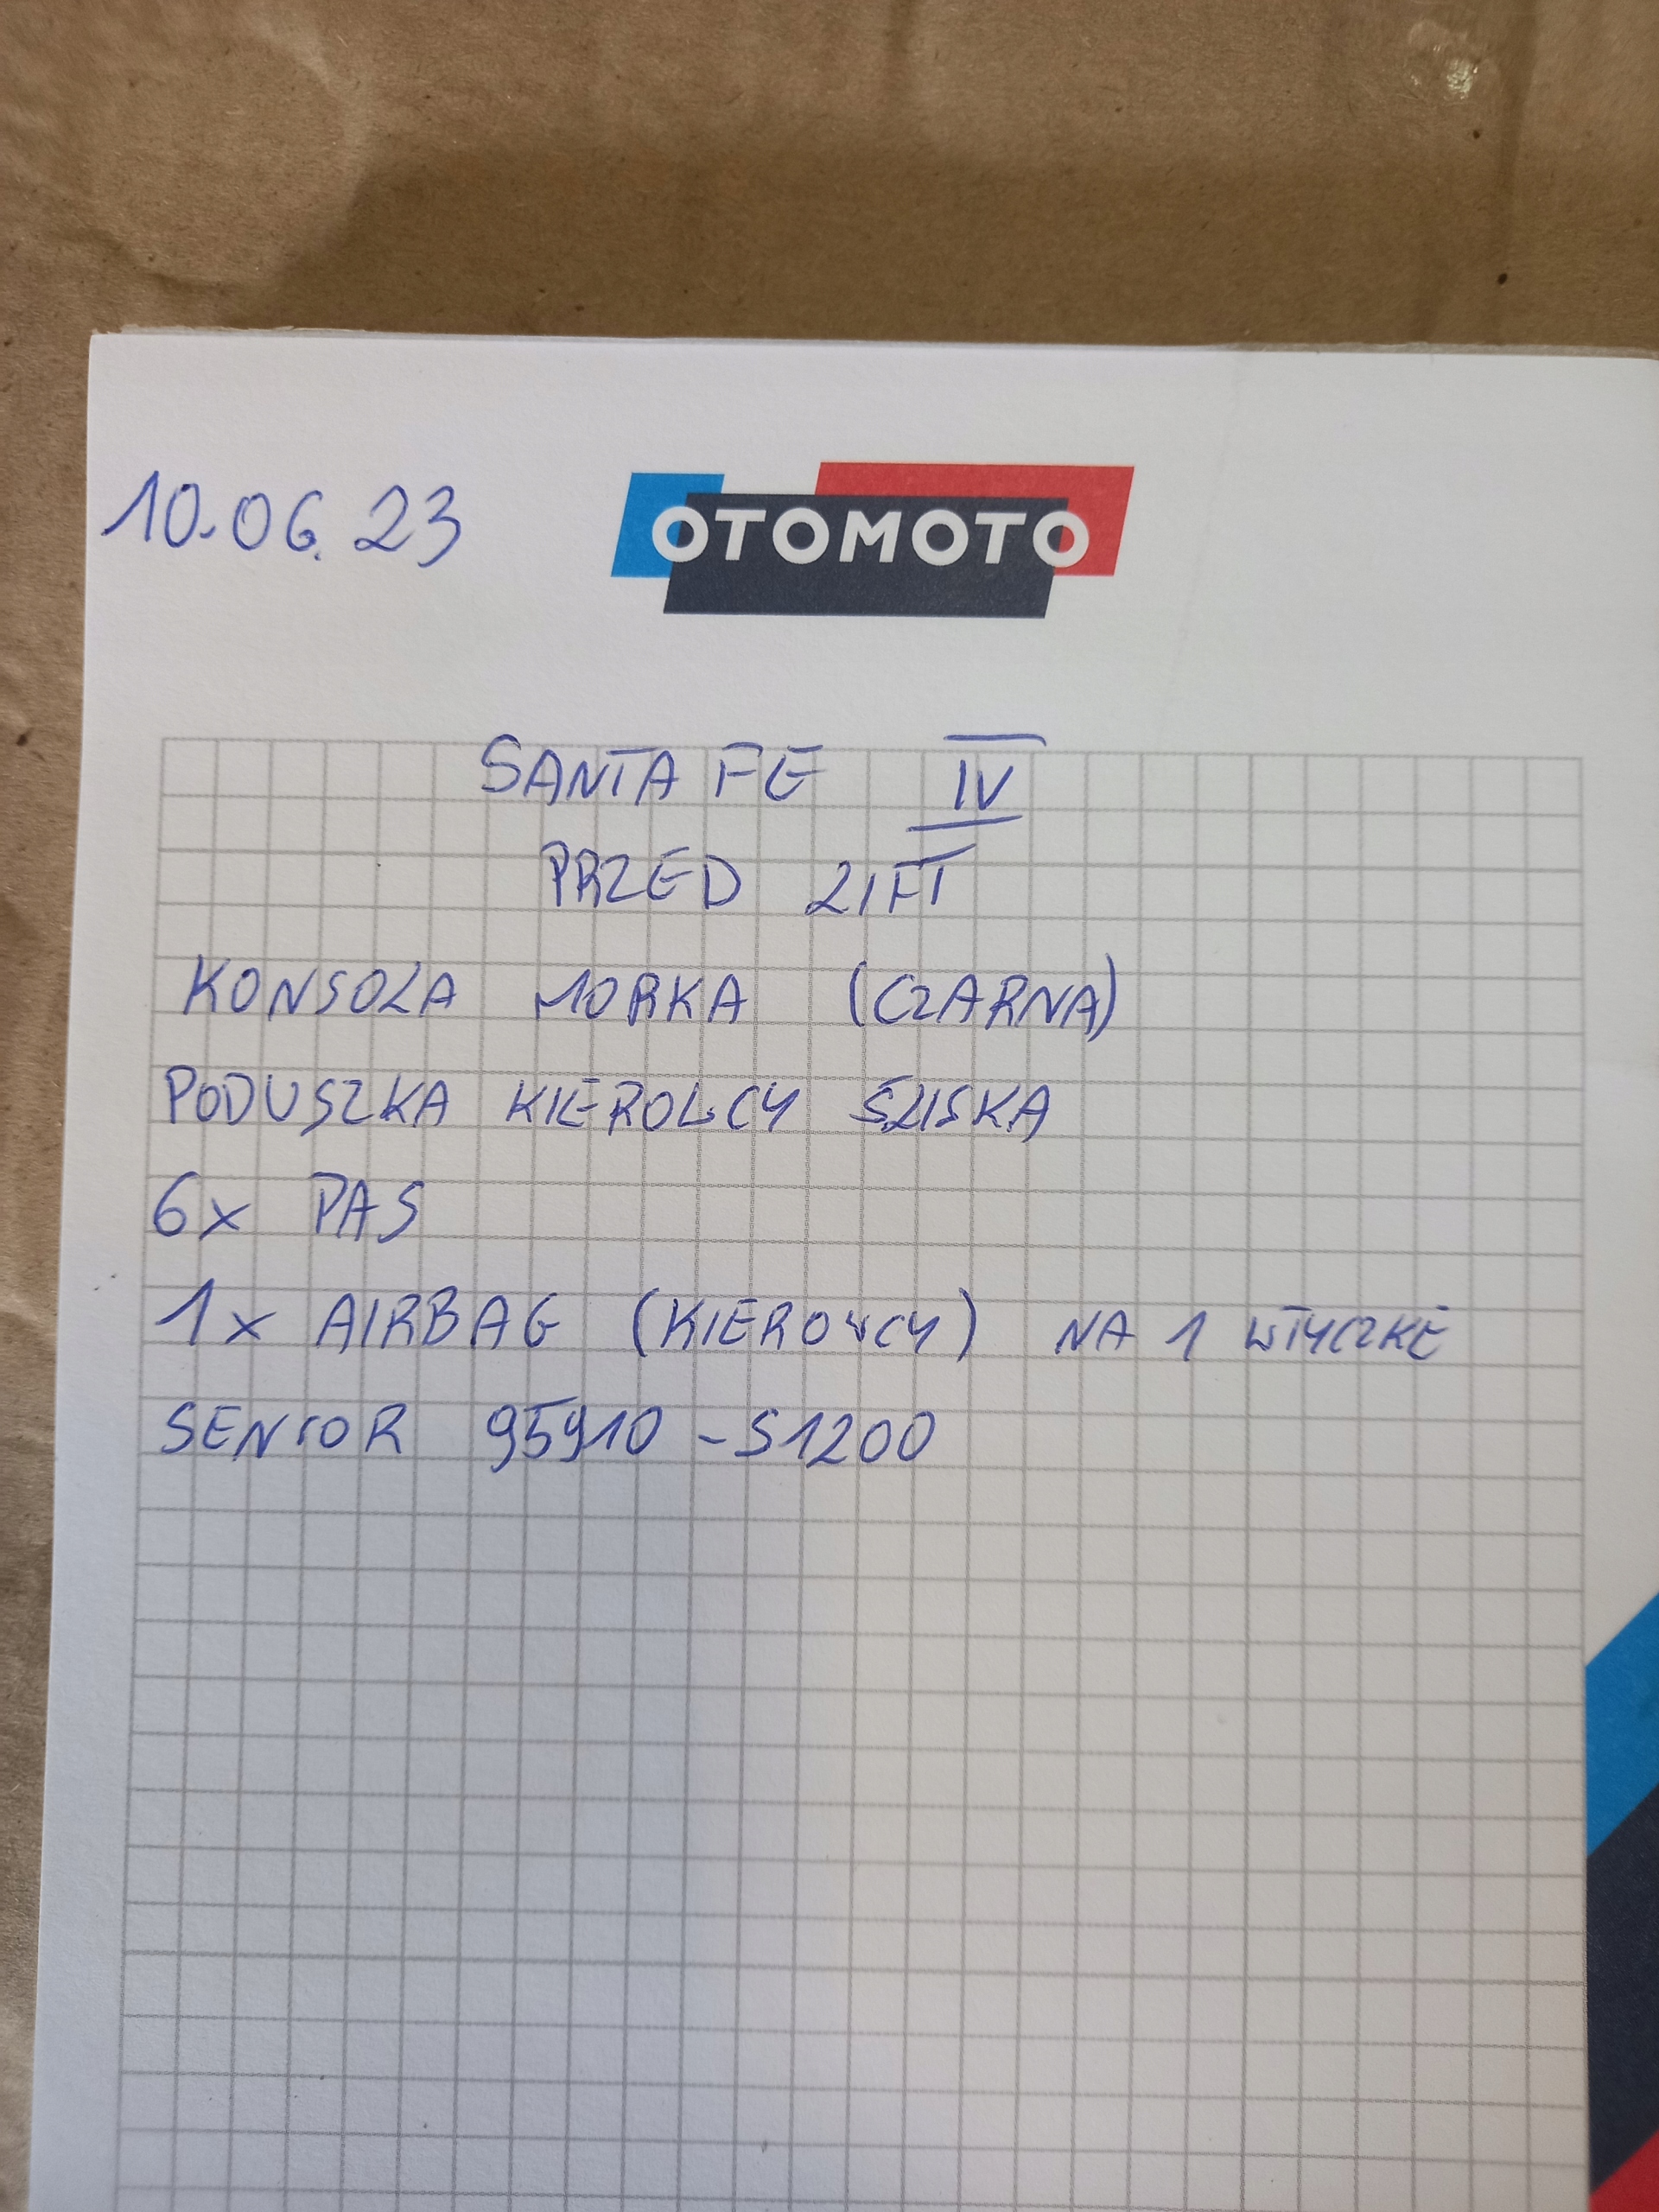 10.06.23
OTOMOTO
SANTA FE IV
PRZED LIFT
KONSOLA MORKA (CZARNA)
PODUSZKA KIEROWCY ŚLISKA
6x PAS
1x AIRBAG (KIEROWCY) NA 1 WTYCZKE
SENSOR 95910-S1200